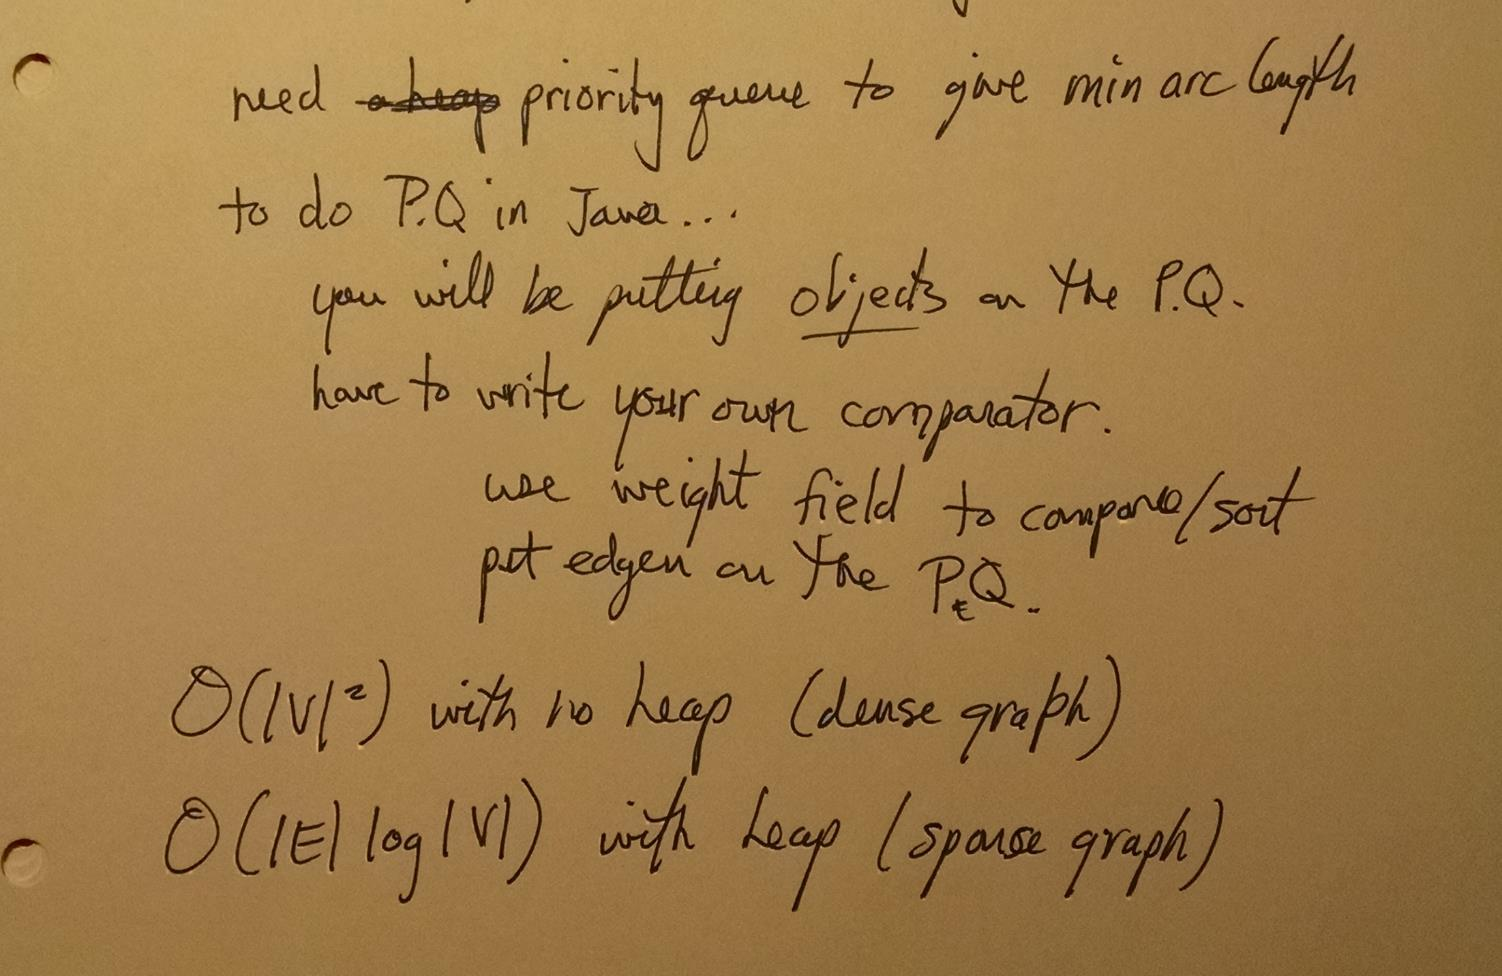 need a heap priority queue to give min arc length
to do P.Q in Java...
you will be putting objects on the P.Q.
have to write your own comparator.
use weight field to compare/sort
put edges on the P.Q.
O(|V|²) with no heap (dense graph)
O(|E| log |V|) with heap (sparse graph)